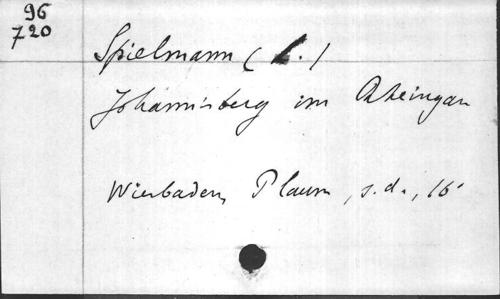 96
720
Spielmann (C.)
Johannisberg im Rheingau
Wiesbaden, Plaum, s.d., 16°